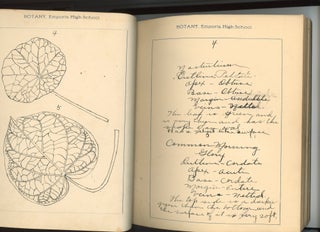 BOTANY, Emporia High School
4
5
BOTANY, Emporia High School
4
Nasturtium
Outline
Apex - Obtuse
Base - Obtuse
Margin -
Veins - Netted
The leaf is green and
is very and has the
Common Morning
Glory
Outline - Cordate
Apex - Acute
Base - Cordate
Margin - Entire
Veins - Netted
The top side is a darker
green than the bottom and
the surface of it is very soft.